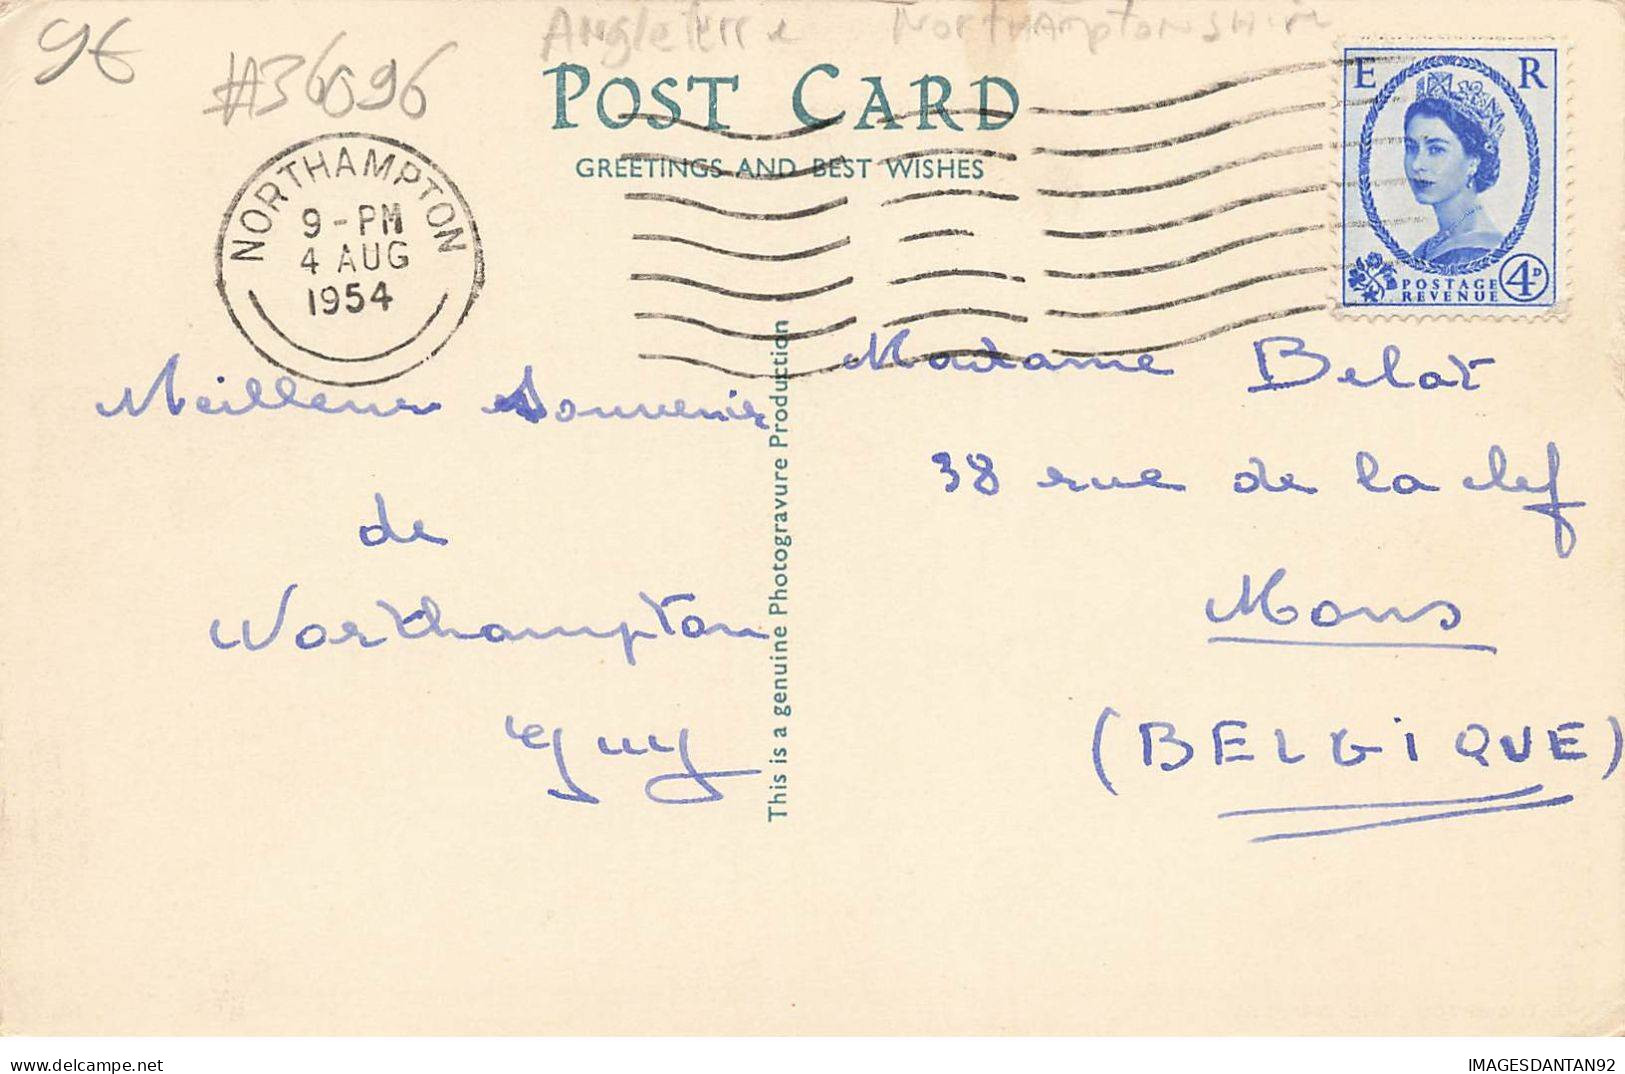 9€
#36096
Angleterre Northamptonshire
POST CARD
GREETINGS AND BEST WISHES
NORTHAMPTON
9-PM
4 AUG
1954
E R
POSTAGE
REVENUE
4D
Meilleurs Souvenirs
de
Northampton
Guy
This is a genuine Photogravure Production
Madame Belat
38 rue de la clef
Mons
(BELGIQUE)
IMAGESDANTAN92